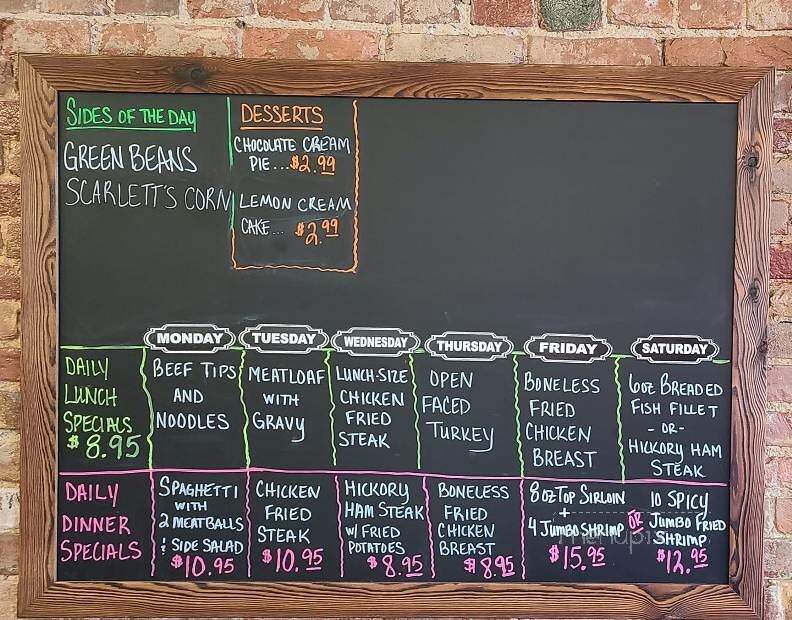 SIDES OF THE DAY
GREEN BEANS
SCARLETT'S CORN
DESSERTS
CHOCOLATE CREAM
PIE... $2.99
LEMON CREAM
CAKE... $2.99
MONDAY
TUESDAY
WEDNESDAY
THURSDAY
FRIDAY
SATURDAY
DAILY
LUNCH
SPECIALS
$8.95
BEEF TIPS
AND
NOODLES
MEATLOAF
WITH
GRAVY
LUNCH-SIZE
CHICKEN
FRIED
STEAK
OPEN
FACED
TURKEY
BONELESS
FRIED
CHICKEN
BREAST
6oz BREADED
FISH FILLET
-OR-
HICKORY HAM
STEAK
DAILY
DINNER
SPECIALS
SPAGHETTI
WITH
2 MEATBALLS
& SIDE SALAD
$10.95
CHICKEN
FRIED
STEAK
$10.95
HICKORY
HAM STEAK
W/ FRIED
POTATOES
$8.95
BONELESS
FRIED
CHICKEN
BREAST
$8.95
8oz TOP SIRLOIN
+
4 JUMBO SHRIMP
$15.95
OR
10 SPICY
JUMBO FRIED
SHRIMP
$12.95